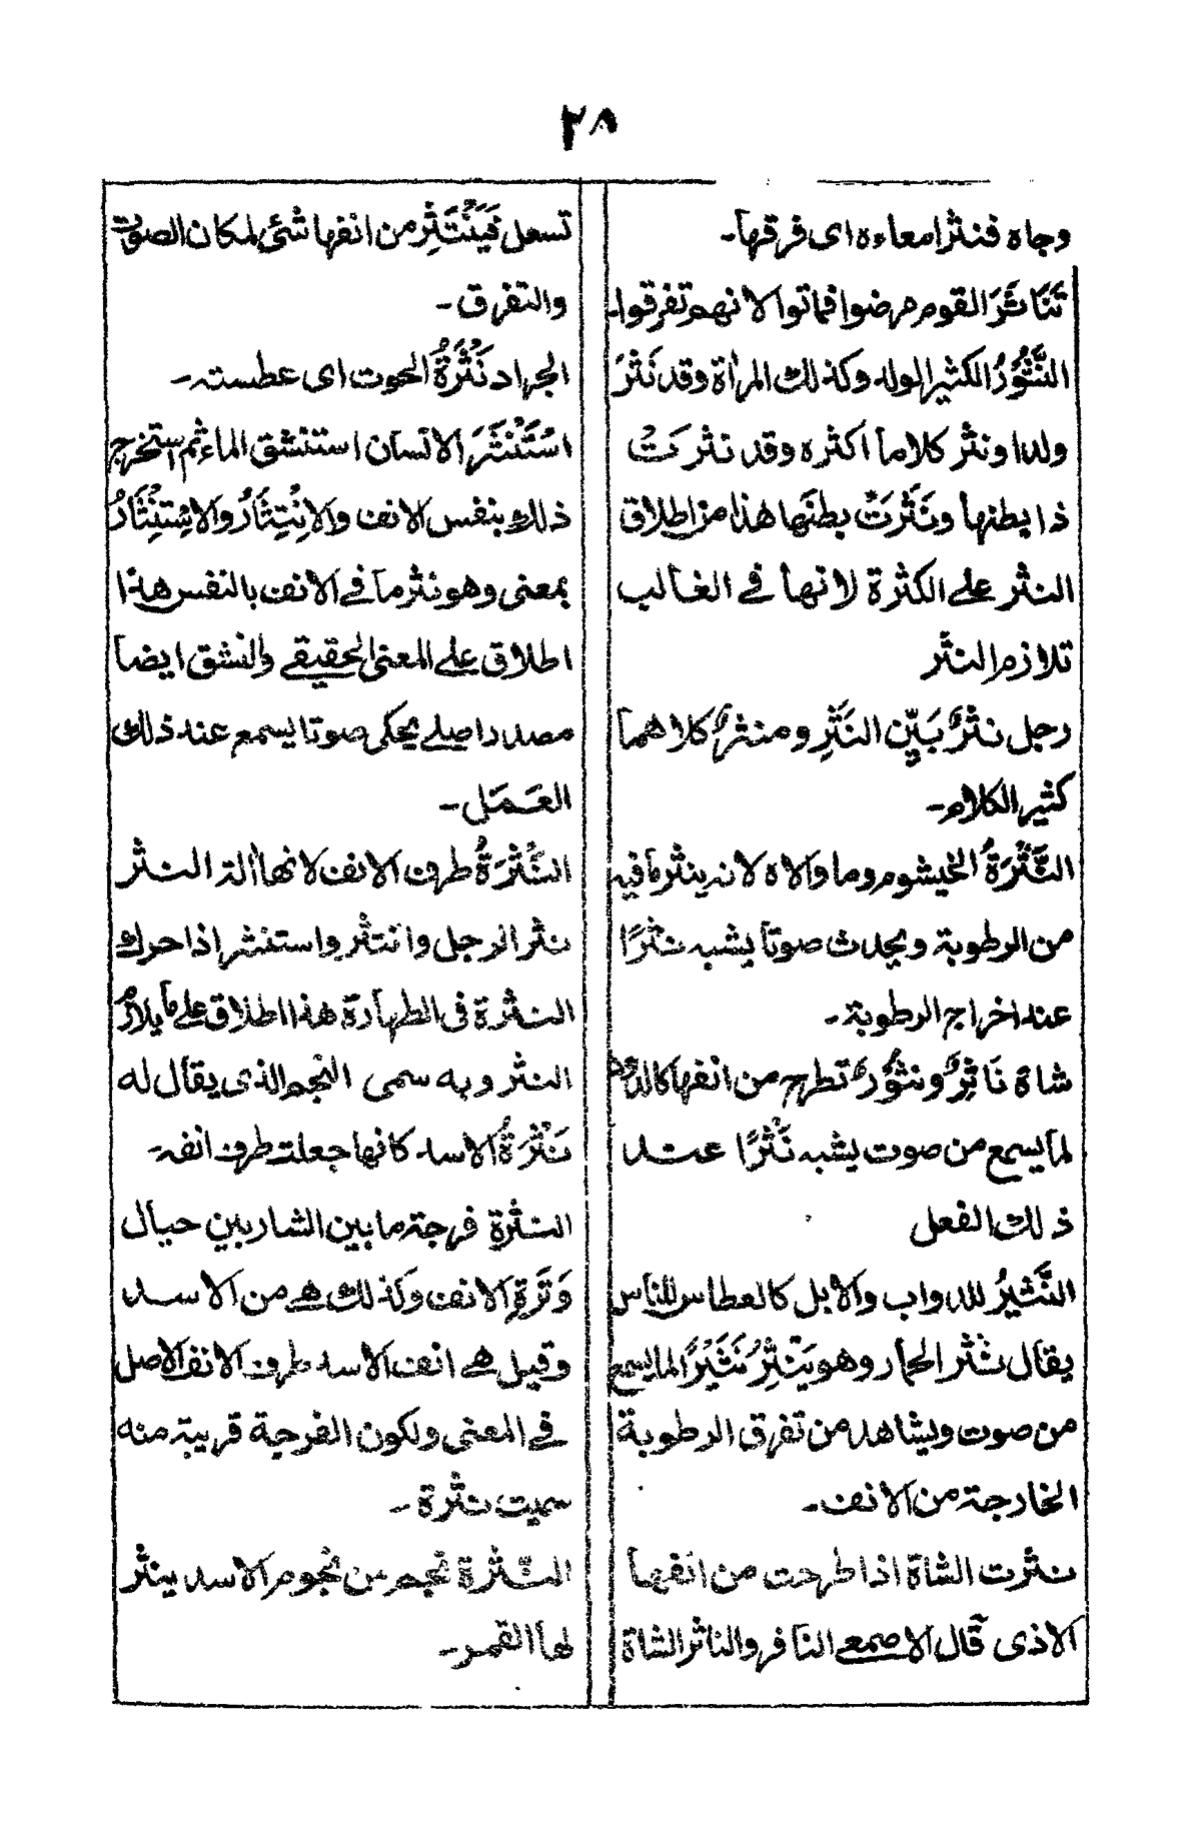 ٢٨
وجاه فنثر امعاءه اى فرقها-
تَنَاثَرَ القوم مرضوا فماتوا لانهم تفرقوا-
النَّثُوْرُ الكثير الولد وكذلك المرأة وقد نَثَرَ
ولدا ونثر كلاما اكثره وقد نثرَتْ
ذا بطنها ونَثَرَتْ بطنَها هذا من اطلاق
النثر على الكثرة لانها في الغالب
تلازم النثر
رجل نثرٌ بَيِّن النَثَرِ ومنثرٌ كلاهما
كثير الكلام-
النَّثْرَةُ الخيشوم وما والاه لانه ينثر ما فيه
من الرطوبة ويحدث صوتا يشبه نثرًا
عند اخراج الرطوبة-
شاة نَاثِرٌ ونثُوْرٌ تطرح من انفها كالدود
لما يسمع من صوت يشبه نَثْرًا عند
ذلك الفعل
النَّثِيْرُ للدواب والابل كالعطاس للناس
يقال نثر الحمار وهو يَنْثِرُ نَثِيْرًا لما يسمع
من صوت ويشاهد من تفرق الرطوبة
الخارجة من الانف-
نثرت الشاة اذا طرحت من انفها
الاذى قال الاصمعي النافر والناثر الشاة
تسعل فَيَنْتَثِر من انفها شئ لمكان الصوت
والتفرق-
الجراد نَثْرَةُ الحوت اى عطسته-
اسْتَنْثَرَ الانسان استنشق الماء ثم استخرج
ذلك بنفس الانف والانْتِثَارُ والاسْتِنْثَارُ
بمعنى وهو نثر ما في الانف بالنفس هذا
اطلاق على المعنى الحقيقي والنشق ايضا
مصدر اصلي يحكى صوتا يسمع عند ذلك
العَمَل-
النَّثْرَةُ طرف الانف لانها ألة النثر
نثر الرجل وانتثر واستنثر اذا حرك
النثرة فى الطهارة هذا اطلاق على ما يلازم
النثر وبه سمى النجم الذى يقال له
نَثْرَةُ الاسد كانها جعلت طرف انفه-
النثرة فرجة ما بين الشاربين حيال
وَتَرَةِ الانف وكذلك هي من الاسد
وقيل هي انف الاسد طرف الانف الاصل
في المعنى ولكون الفرجة قريبة منه
سميت نثرة-
النّثرة نجم من نجوم الاسد ينثر
لها القمر-